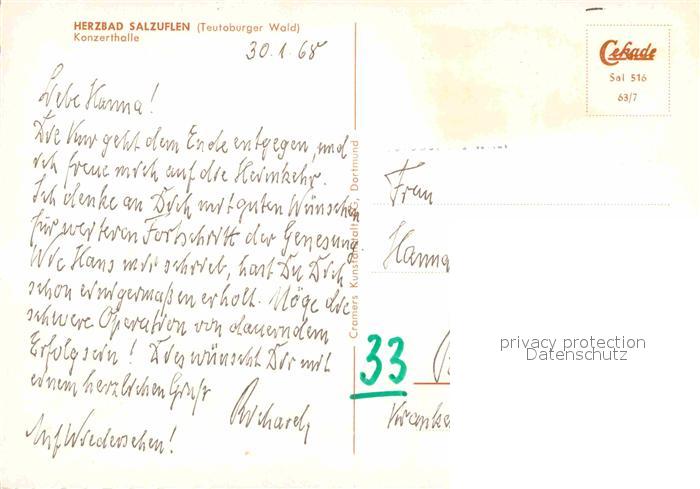 HERZBAD SALZUFLEN (Teutoburger Wald)
Konzerthalle
30.1.68
Liebe Hanna!
Die Kur geht dem Ende entgegen, und
ich freue mich auf die Heimkehr.
Ich denke an Dich mit guten Wünschen
für weiteren Fortschritt der Genesung.
Wie Hans mir schrieb, hast Du Dich
schon einigermaßen erholt. Möge die
schwere Operation von dauerndem
Erfolg sein! Dies wünscht Dir mit
einem herzlichen Gruß
Richard
Auf Wiedersehen!
Cramers Kunstanstalt KG, Dortmund
Cekade
Sal 516
63/7
Frau
Hanna
33
Kranke
privacy protection
Datenschutz